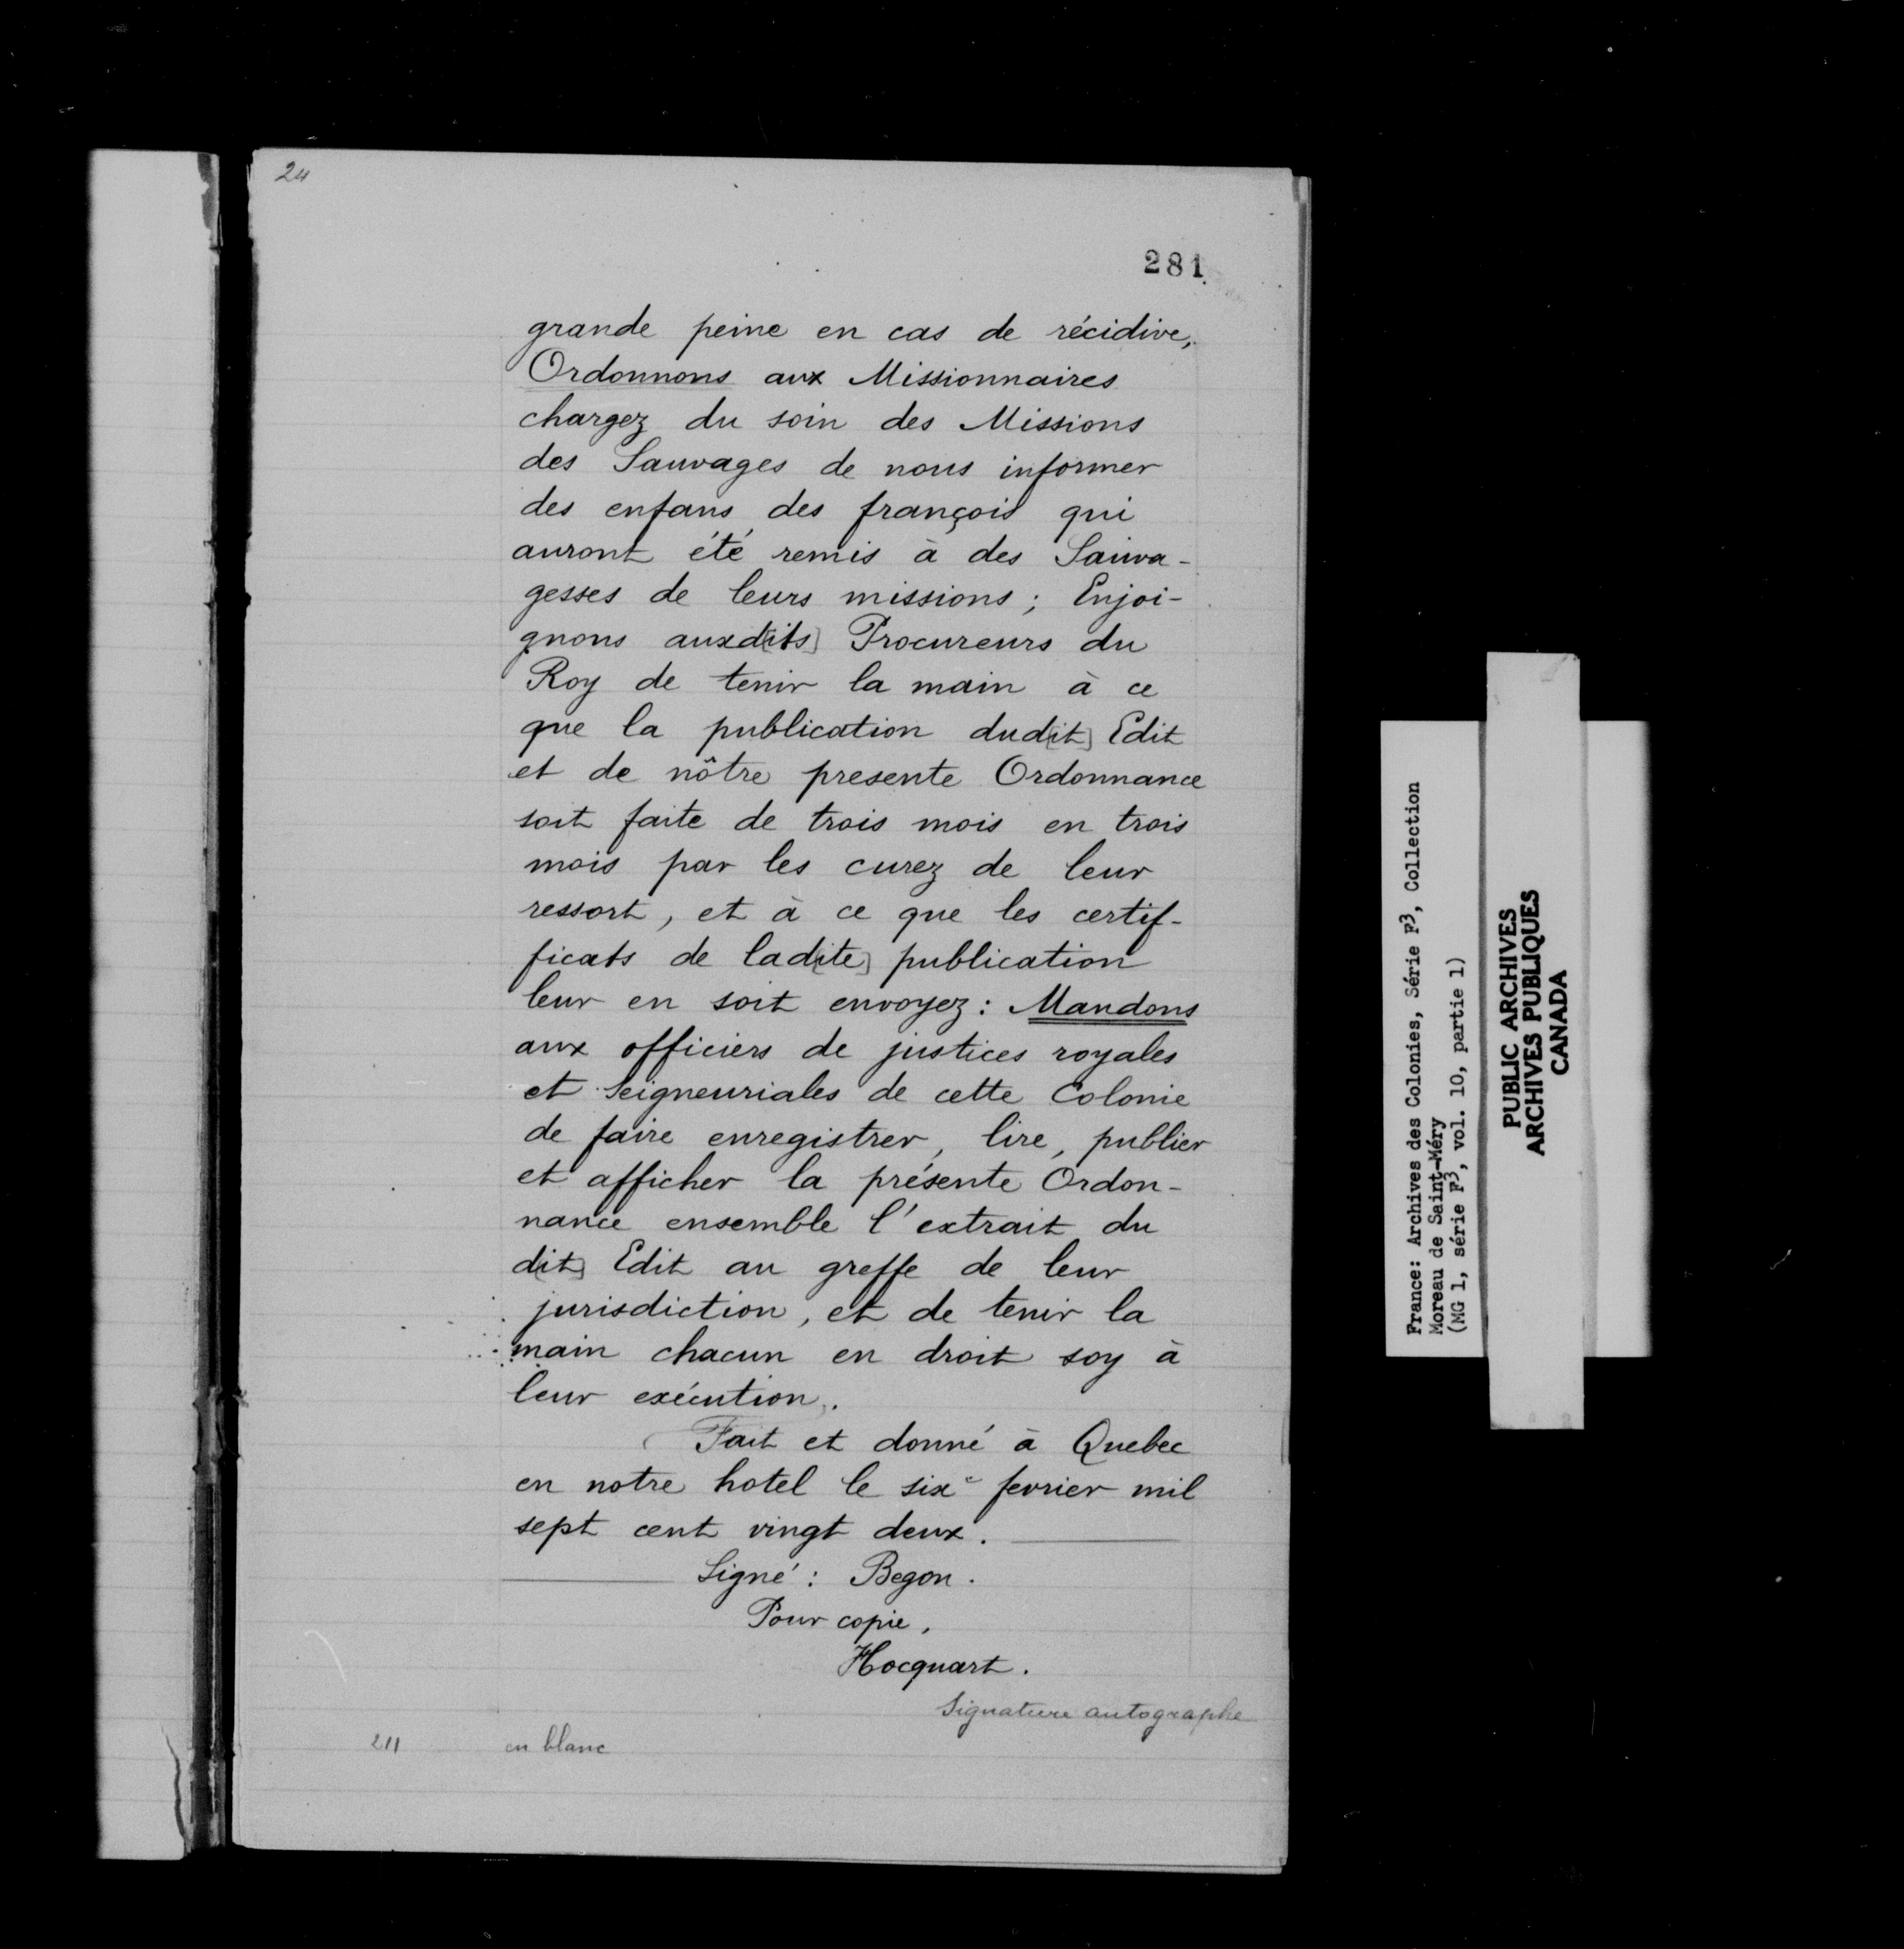 24
281
grande peine en cas de récidive,
Ordonnons aux Missionnaires
chargez du soin des Missions
des Sauvages de nous informer
des enfans des françois qui
auront été remis à des Sauva-
gesses de leurs missions ; Enjoi-
gnons auxd[its] Procureurs du
Roy de tenir la main à ce
que la publication dud[it] Edit
et de nôtre presente Ordonnance
soit faite de trois mois en trois
mois par les curez de leur
ressort, et à ce que les certif-
ficats de lad[ite] publication
leur en soit envoyez : Mandons
aux officiers de justices royales
et Seigneuriales de cette Colonie
de faire enregistrer, lire, publier
et afficher la présente Ordon-
nance ensemble l'extrait du
d[it] Edit au greffe de leur
jurisdiction, et de tenir la
main chacun en droit soy à
leur exécution.
Fait et donné à Quebec
en notre hotel le sixe fevrier mil
sept cent vingt deux.
Signé : Begon.
Pour copie,
Hocquart.
Signature autographe
211 en blanc
France: Archives des Colonies, Série F3, Collection
Moreau de Saint-Méry
(MG 1, série F3, vol. 10, partie 1)
PUBLIC ARCHIVES
ARCHIVES PUBLIQUES
CANADA